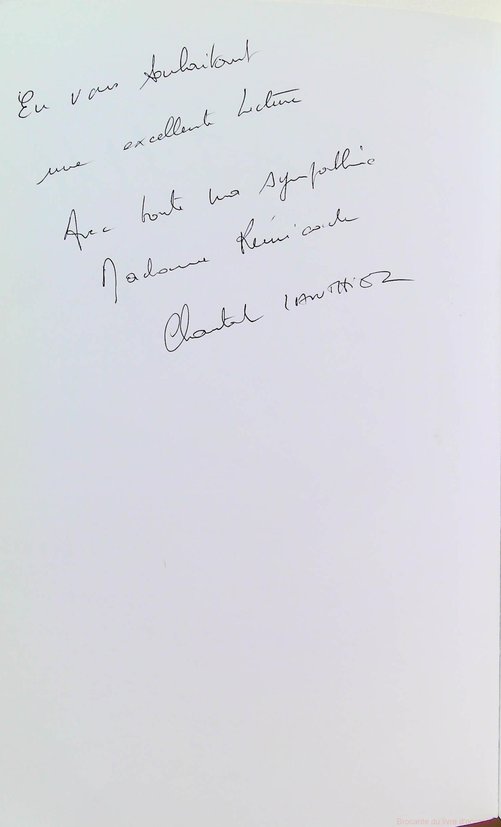 En vous souhaitant
une excellente lecture
Avec toute ma sympathie
Madame
Chantal LANTHIER
Brocante du livre d'occasion